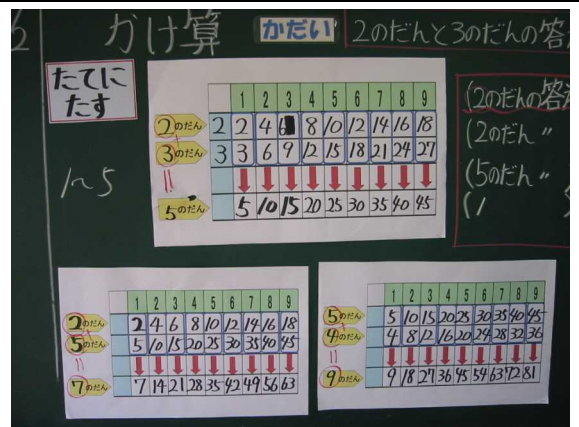 かけ算 かだい 2のだんと3のだんの答
たてに
たす
1～5
1 2 3 4 5 6 7 8 9
2のだん 2 2 4 6 8 10 12 14 16 18
3のだん 3 3 6 9 12 15 18 21 24 27
||
5のだん 5 10 15 20 25 30 35 40 45
(2のだんの答
(2のだん〃
(5のだん〃
(
1 2 3 4 5 6 7 8 9
2のだん 2 4 6 8 10 12 14 16 18
5のだん 5 10 15 20 25 30 35 40 45
||
7のだん 7 14 21 28 35 42 49 56 63
1 2 3 4 5 6 7 8 9
5のだん 5 10 15 20 25 30 35 40 45
4のだん 4 8 12 16 20 24 28 32 36
||
9のだん 9 18 27 36 45 54 63 72 81